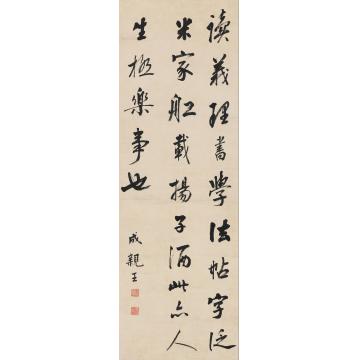 读義理書學法帖字泛
米家舡載揚子酒此亦人
生極樂事也
成親王